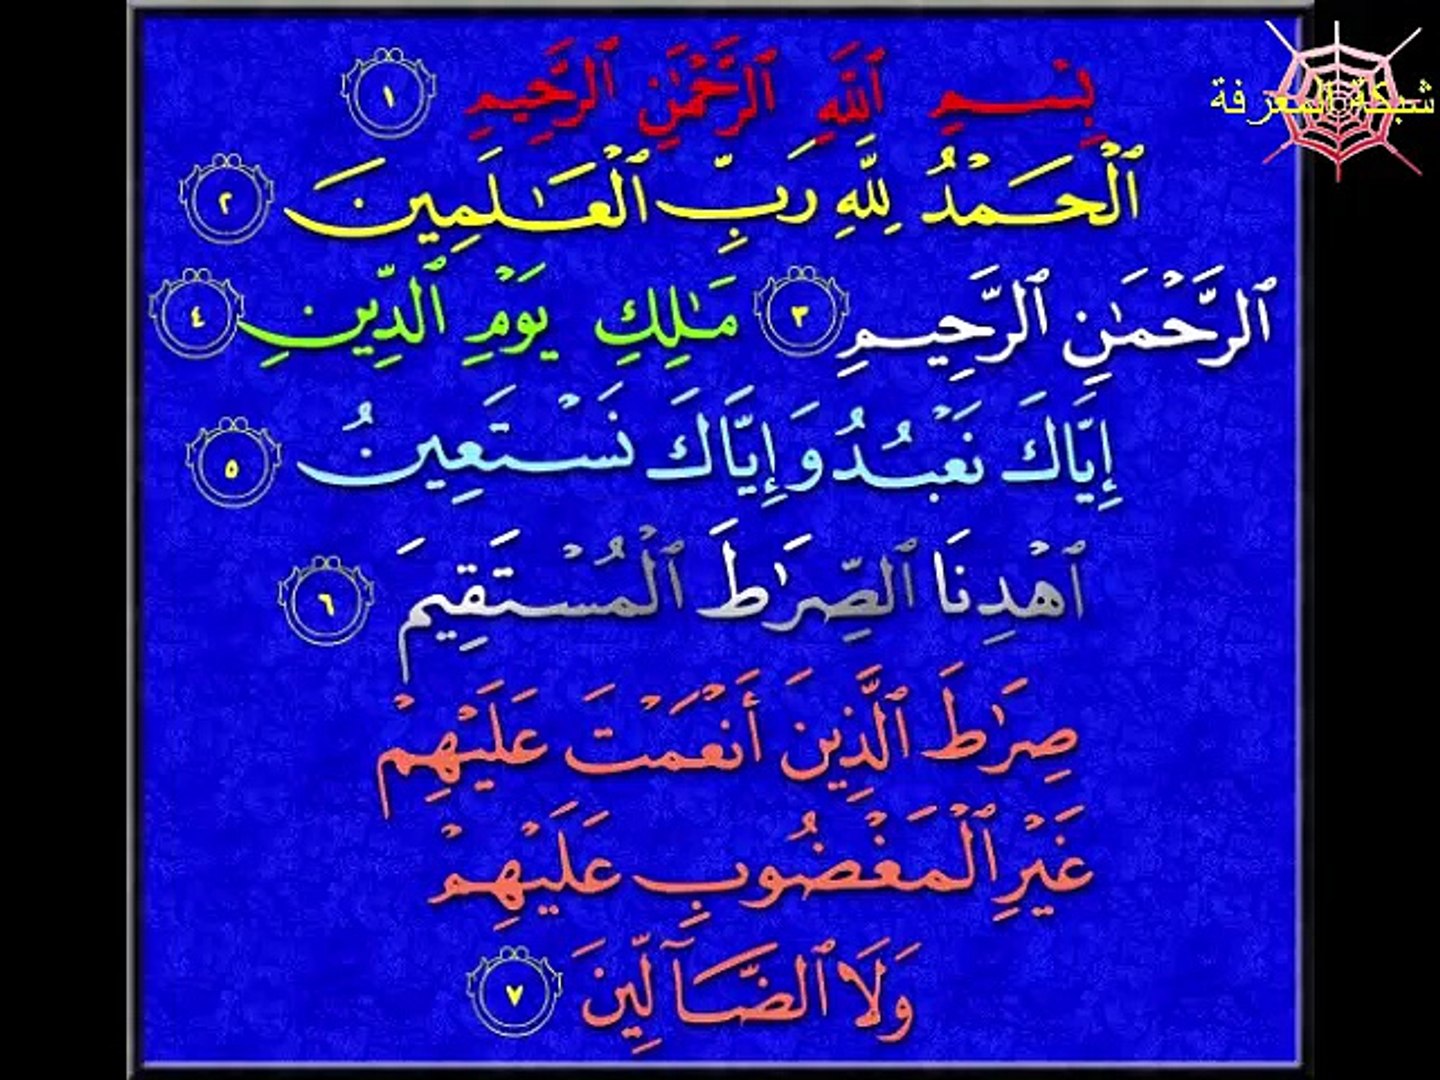 بِسْمِ ٱللَّهِ ٱلرَّحْمَٰنِ ٱلرَّحِيمِ ١
ٱلْحَمْدُ لِلَّهِ رَبِّ ٱلْعَٰلَمِينَ ٢
ٱلرَّحْمَٰنِ ٱلرَّحِيمِ ٣ مَٰلِكِ يَوْمِ ٱلدِّينِ ٤
إِيَّاكَ نَعْبُدُ وَإِيَّاكَ نَسْتَعِينُ ٥
ٱهْدِنَا ٱلصِّرَٰطَ ٱلْمُسْتَقِيمَ ٦
صِرَٰطَ ٱلَّذِينَ أَنْعَمْتَ عَلَيْهِمْ
غَيْرِ ٱلْمَغْضُوبِ عَلَيْهِمْ
وَلَا ٱلضَّآلِّينَ ٧
شبكة المعرفة